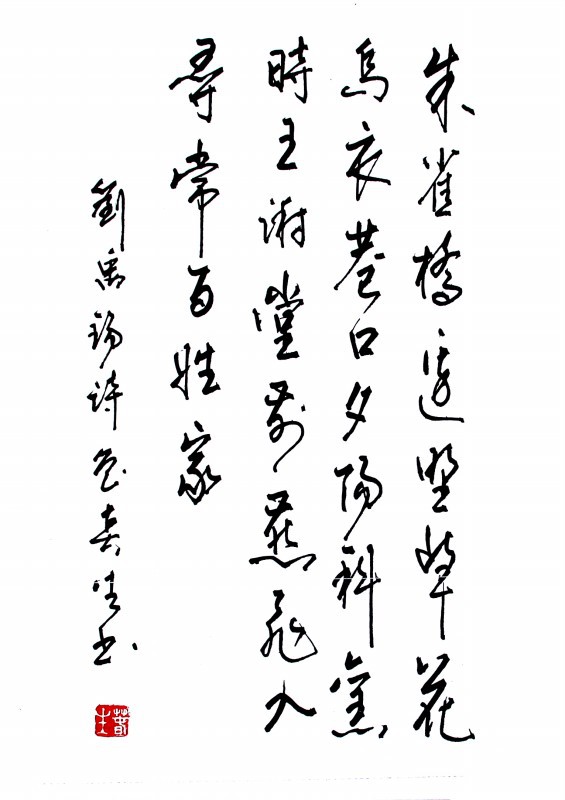 朱雀橋邊野草花
烏衣巷口夕陽斜舊
時王謝堂前燕飛入
尋常百姓家
劉禹錫詩春生书